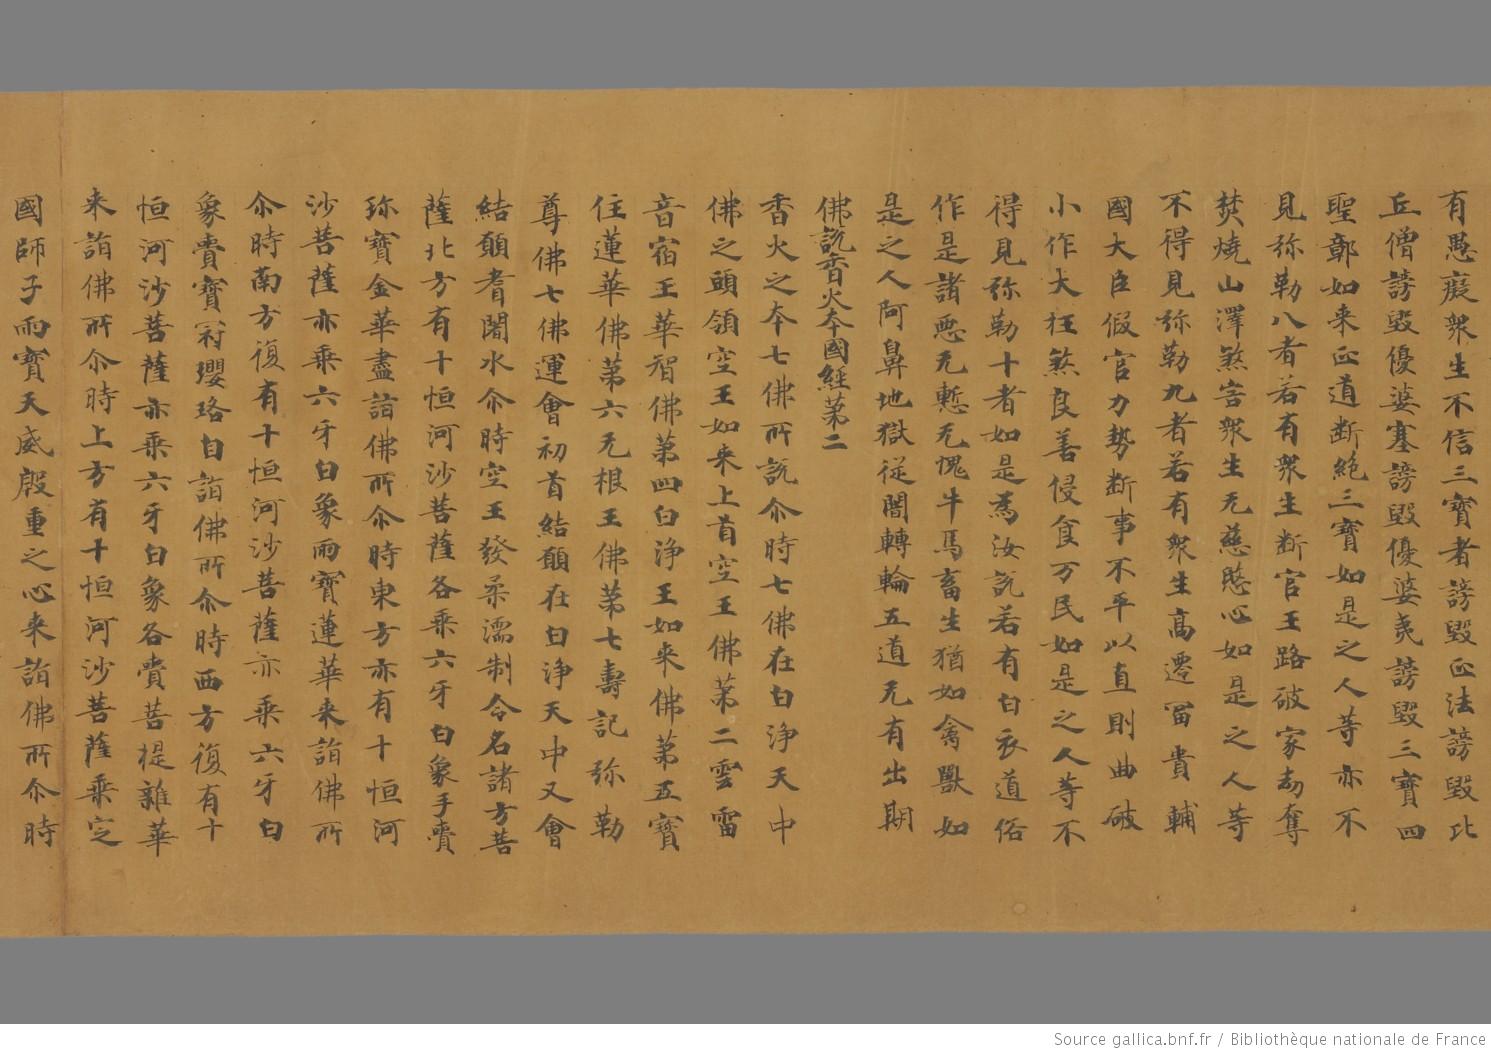 有愚癡衆生不信三寶者謗毀正法謗毀比
丘僧謗毀優婆塞謗毀優婆夷謗毀三寶四
聖鄣如来正道断絶三寶如是之人等亦不
見弥勒八者若有衆生断官王路破家劫奪
焚燒山澤煞害衆生无慈愍心如是之人等
不得見弥勒九者若有衆生高遷冨貴輔
國大臣假官力勢断事不平以直則曲破
小作大枉煞良善侵食万民如是之人等不
得見弥勒十者如是為汝説若有白衣道俗
作是諸惡无慙无愧牛馬畜生猶如禽獸如
是之人阿鼻地獄従闇轉輪五道无有出期
佛説香火夲國經苐二
香火之夲七佛所説尒時七佛在白浄天中
佛之頭領空王如来上首空王佛苐二雲雷
音宿王華智佛苐四白浄王如来佛苐五寶
住蓮華佛苐六无根王佛苐七壽記弥勒
尊佛七佛運會初首結願在白浄天中又會
結願耆闍水尒時空王發柔濡制令名諸方菩
薩北方有十恒河沙菩薩各乘六牙白象手賷
珎寶金華盡詣佛所尒時東方亦有十恒河
沙菩薩亦乘六牙白象雨寶蓮華来詣佛所
尒時南方復有十恒河沙菩薩亦乘六牙白
象賷寶冠瓔珞自詣佛所尒時西方復有十
恒河沙菩薩亦乘六牙白象各賷菩提雜華
来詣佛所尒時上方有十恒河沙菩薩乘定
國師子雨寶天威殷重之心来詣佛所尒時
Source gallica.bnf.fr / Bibliothèque nationale de France